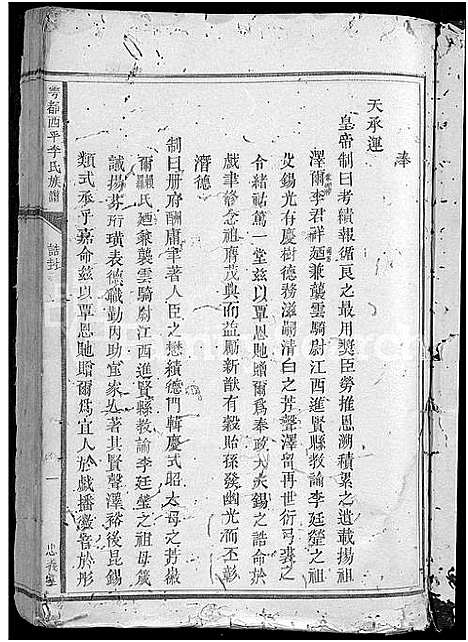 奉
天承運
皇帝制曰考績報循良之最用獎臣勞推恩溯積累之遺載揚祖
澤爾李君祥廼兼襲雲騎尉江西進賢縣教諭李廷瑩之祖
父錫光有慶樹德務滋嗣清白之芳聲澤留再世衍弓裘之
令緒祜篤一堂茲以覃恩貤贈爾為奉政大夫錫之誥命於
戲聿修念祖膺茂典而益勵新猷有穀貽孫發幽光而丕彰
潛德
制曰冊府酬庸聿著人臣之懋績德門輯慶式昭大母之芳徽
爾氏廼兼襲雲騎尉江西進賢縣教諭李廷瑩之祖母箴
誡揚芬珩璜表德職勤內助宜家丕著其賢聲澤裕後昆錫
類式承乎嘉命茲以覃恩貤贈爾為宜人於戲播徽音於彤
雩都西平李氏族譜
誥封
一
忠義堂